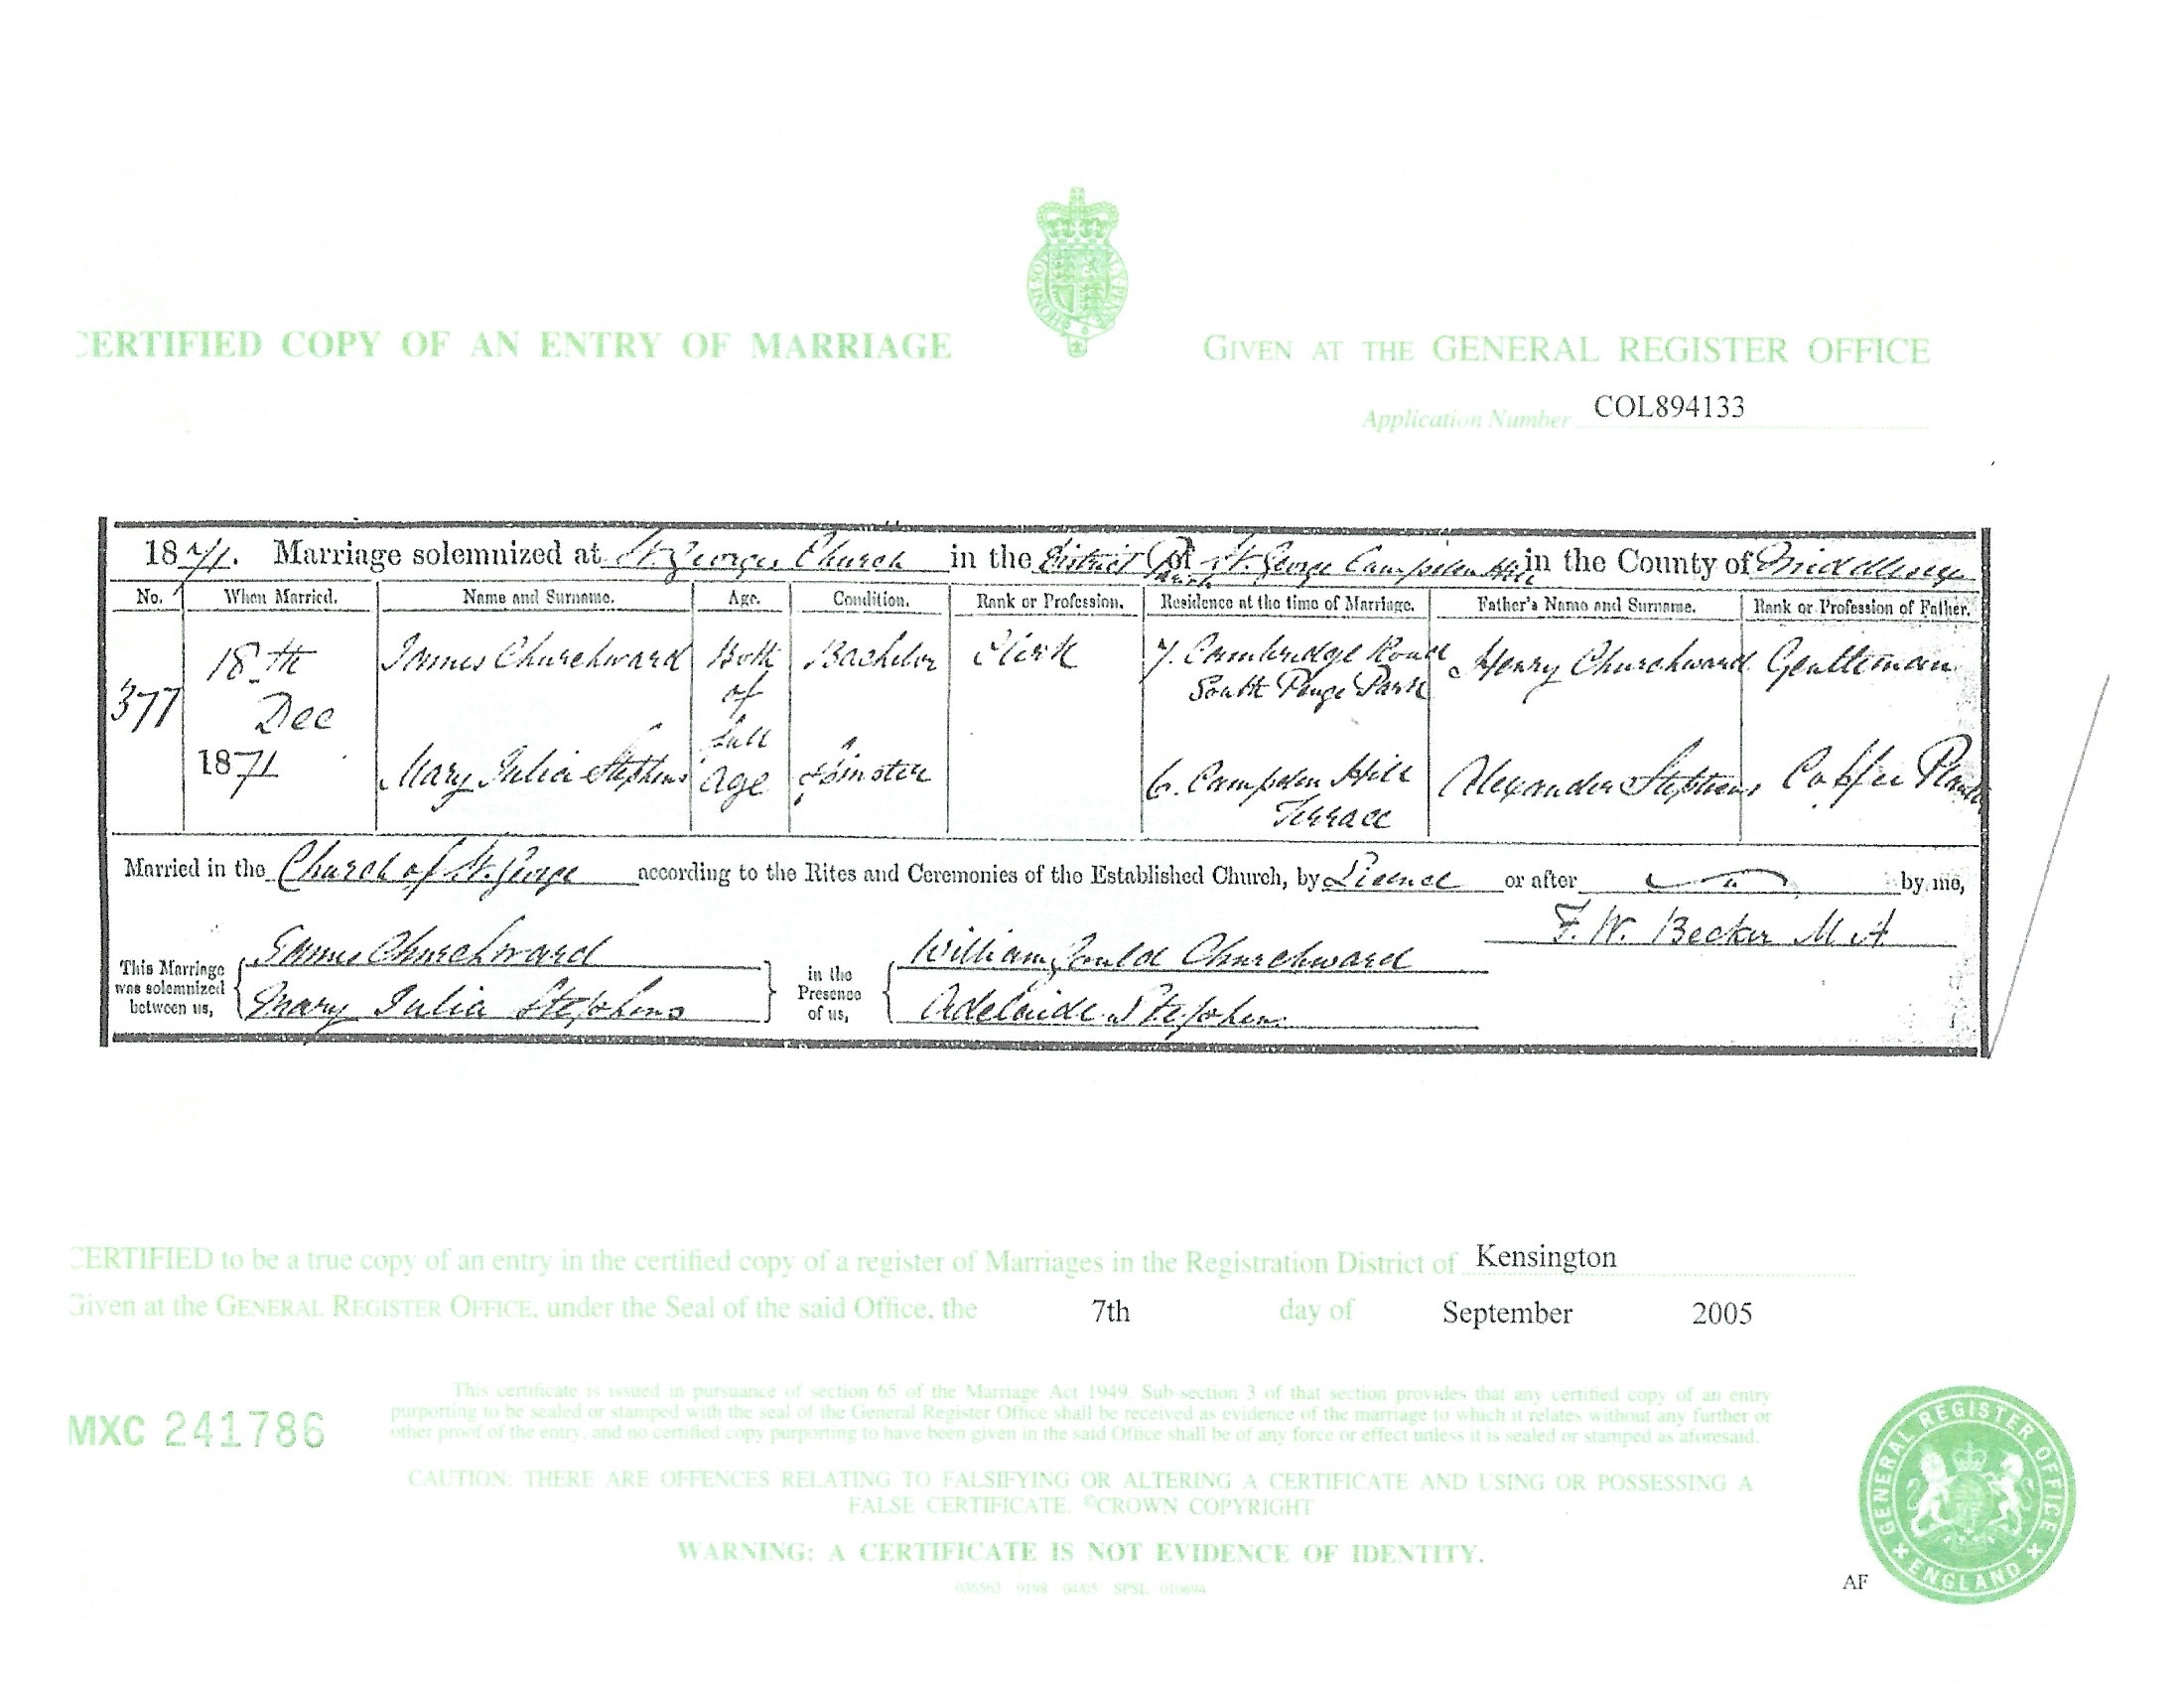 CERTIFIED COPY OF AN ENTRY OF MARRIAGE
GIVEN AT THE GENERAL REGISTER OFFICE
Application Number COL894133
1871. Marriage solemnized at St. Georges Church in the District Parish of St. George Campden Hill in the County of Middlesex
No. When Married. Name and Surname. Age. Condition. Rank or Profession. Residence at the time of Marriage. Father's Name and Surname. Rank or Profession of Father.
377 18th Dec 1871 James Churchward Both of full age Bachelor Clerk 7. Cambridge Road South Penge Park Henry Churchward Gentleman
Mary Julia Stephens Spinster 6. Campden Hill Terrace Alexander Stephens Coffee Planter
Married in the Church of St. George according to the Rites and Ceremonies of the Established Church, by Licence or after by me,
F. W. Becker M A
This Marriage was solemnized between us, James Churchward Mary Julia Stephens in the Presence of us, William Gould Churchward Adelaide Stephens
CERTIFIED to be a true copy of an entry in the certified copy of a register of Marriages in the Registration District of Kensington
Given at the GENERAL REGISTER OFFICE, under the Seal of the said Office, the 7th day of September 2005
MXC 241786
This certificate is issued in pursuance of section 65 of the Marriage Act 1949. Sub-section 3 of that section provides that any certified copy of an entry
purporting to be sealed or stamped with the seal of the General Register Office shall be received as evidence of the marriage to which it relates without any further or
other proof of the entry, and no certified copy purporting to have been given in the said Office shall be of any force or effect unless it is sealed or stamped as aforesaid.
CAUTION: THERE ARE OFFENCES RELATING TO FALSIFYING OR ALTERING A CERTIFICATE AND USING OR POSSESSING A
FALSE CERTIFICATE. ©CROWN COPYRIGHT
WARNING: A CERTIFICATE IS NOT EVIDENCE OF IDENTITY.
036563 9198 04/05 SPSL 010694
AF
GENERAL REGISTER OFFICE
ENGLAND